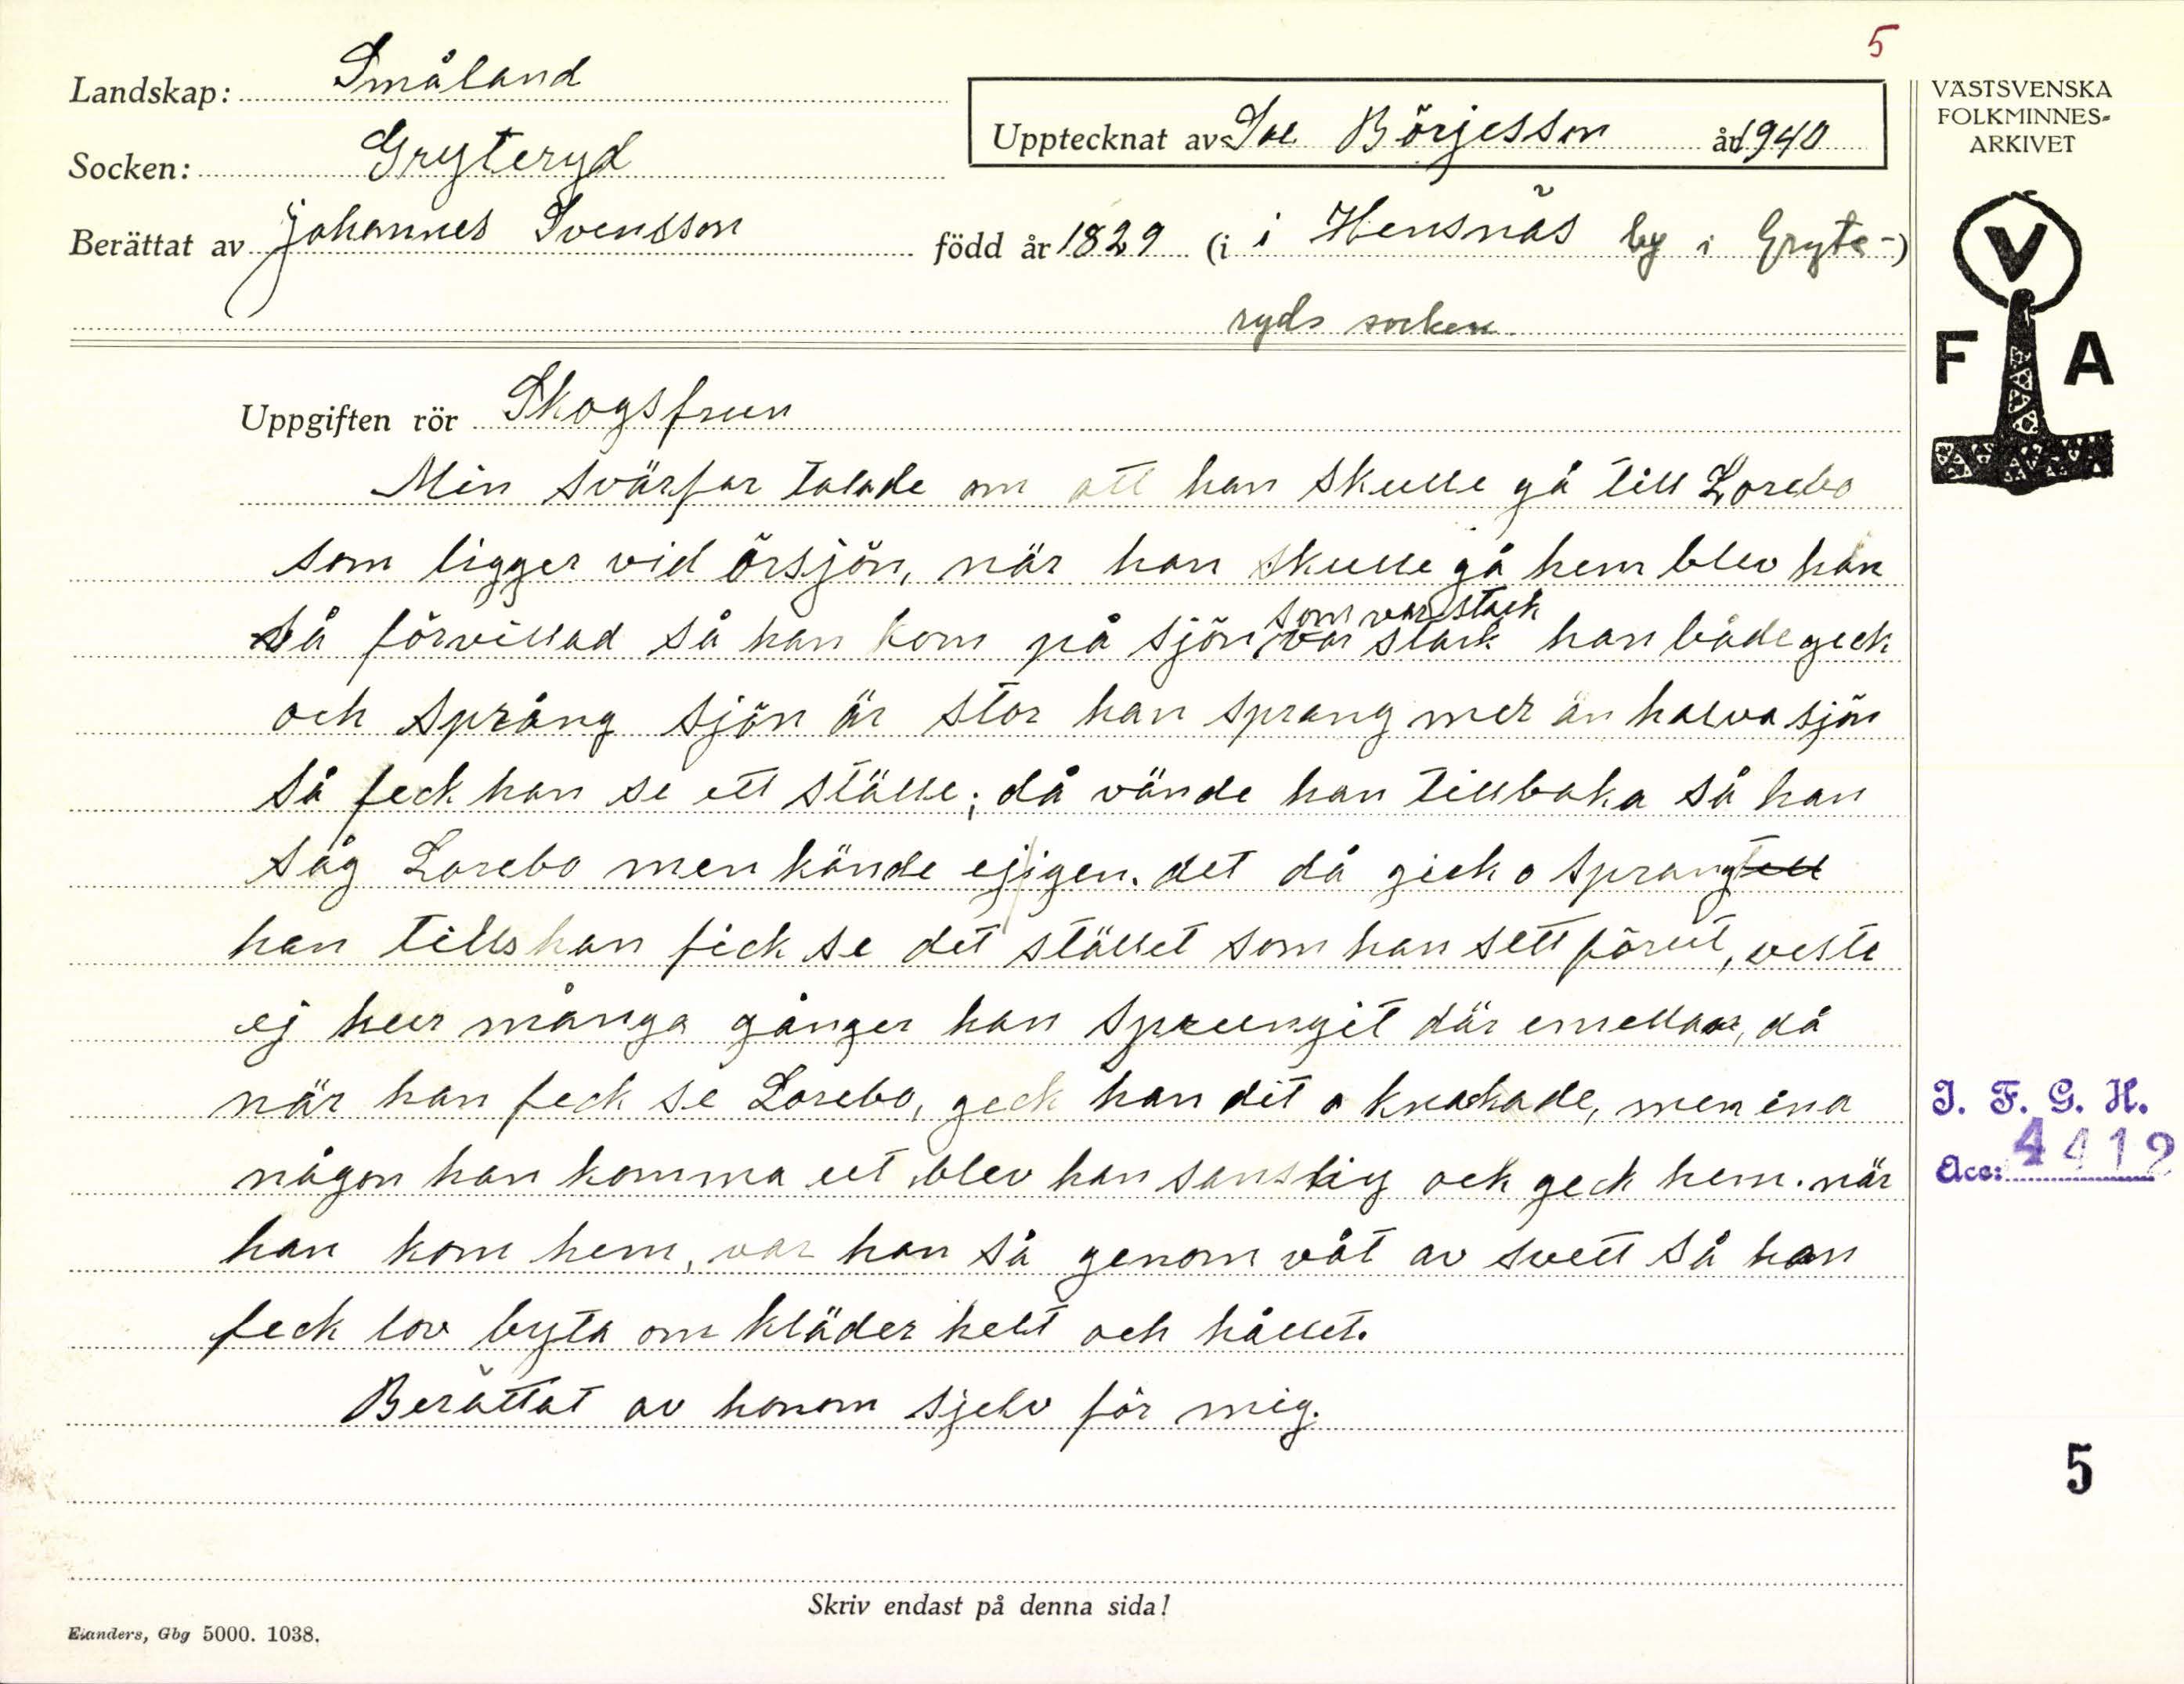 5
Landskap: Småland
Socken: Gryteryd
Upptecknat av Börjesson år 1940
Berättat av Johannes Svensson född år 1829 (i i Hensnäs by i Gryte-)
ryds socken.
VÄSTSVENSKA
FOLKMINNES-
ARKIVET
V
F A
Uppgiften rör Skogsfrun
Min svärfar talade om att han skulle gå till Lorebo
som ligger vid örsjön, när han skulle gå hem blev han
som var stark
så förvillad så han kom på sjön var stark han både geck
och språng sjön är stor han sprang mer än halva sjön
så feck han se ett ställe; då vände han tillbaka så han
såg Lorebo men kände ej igen. det då gick o sprang till
han tills han fick se det stället som han sett förut, veste
ej hur många gånger han sprungit där emellan, då
när han feck se Lorebo, geck han dit o knackade, men ina
någon han komma ut blev han sanslig och geck hem. när
han kom hem, var han så genom våt av svett så han
feck lov byta om kläder helt och hållet.
Berättat av honom sjelv för mig.
I. F. G. H.
Acc: 4412
5
Skriv endast på denna sida!
Elanders, Gbg 5000. 1038.